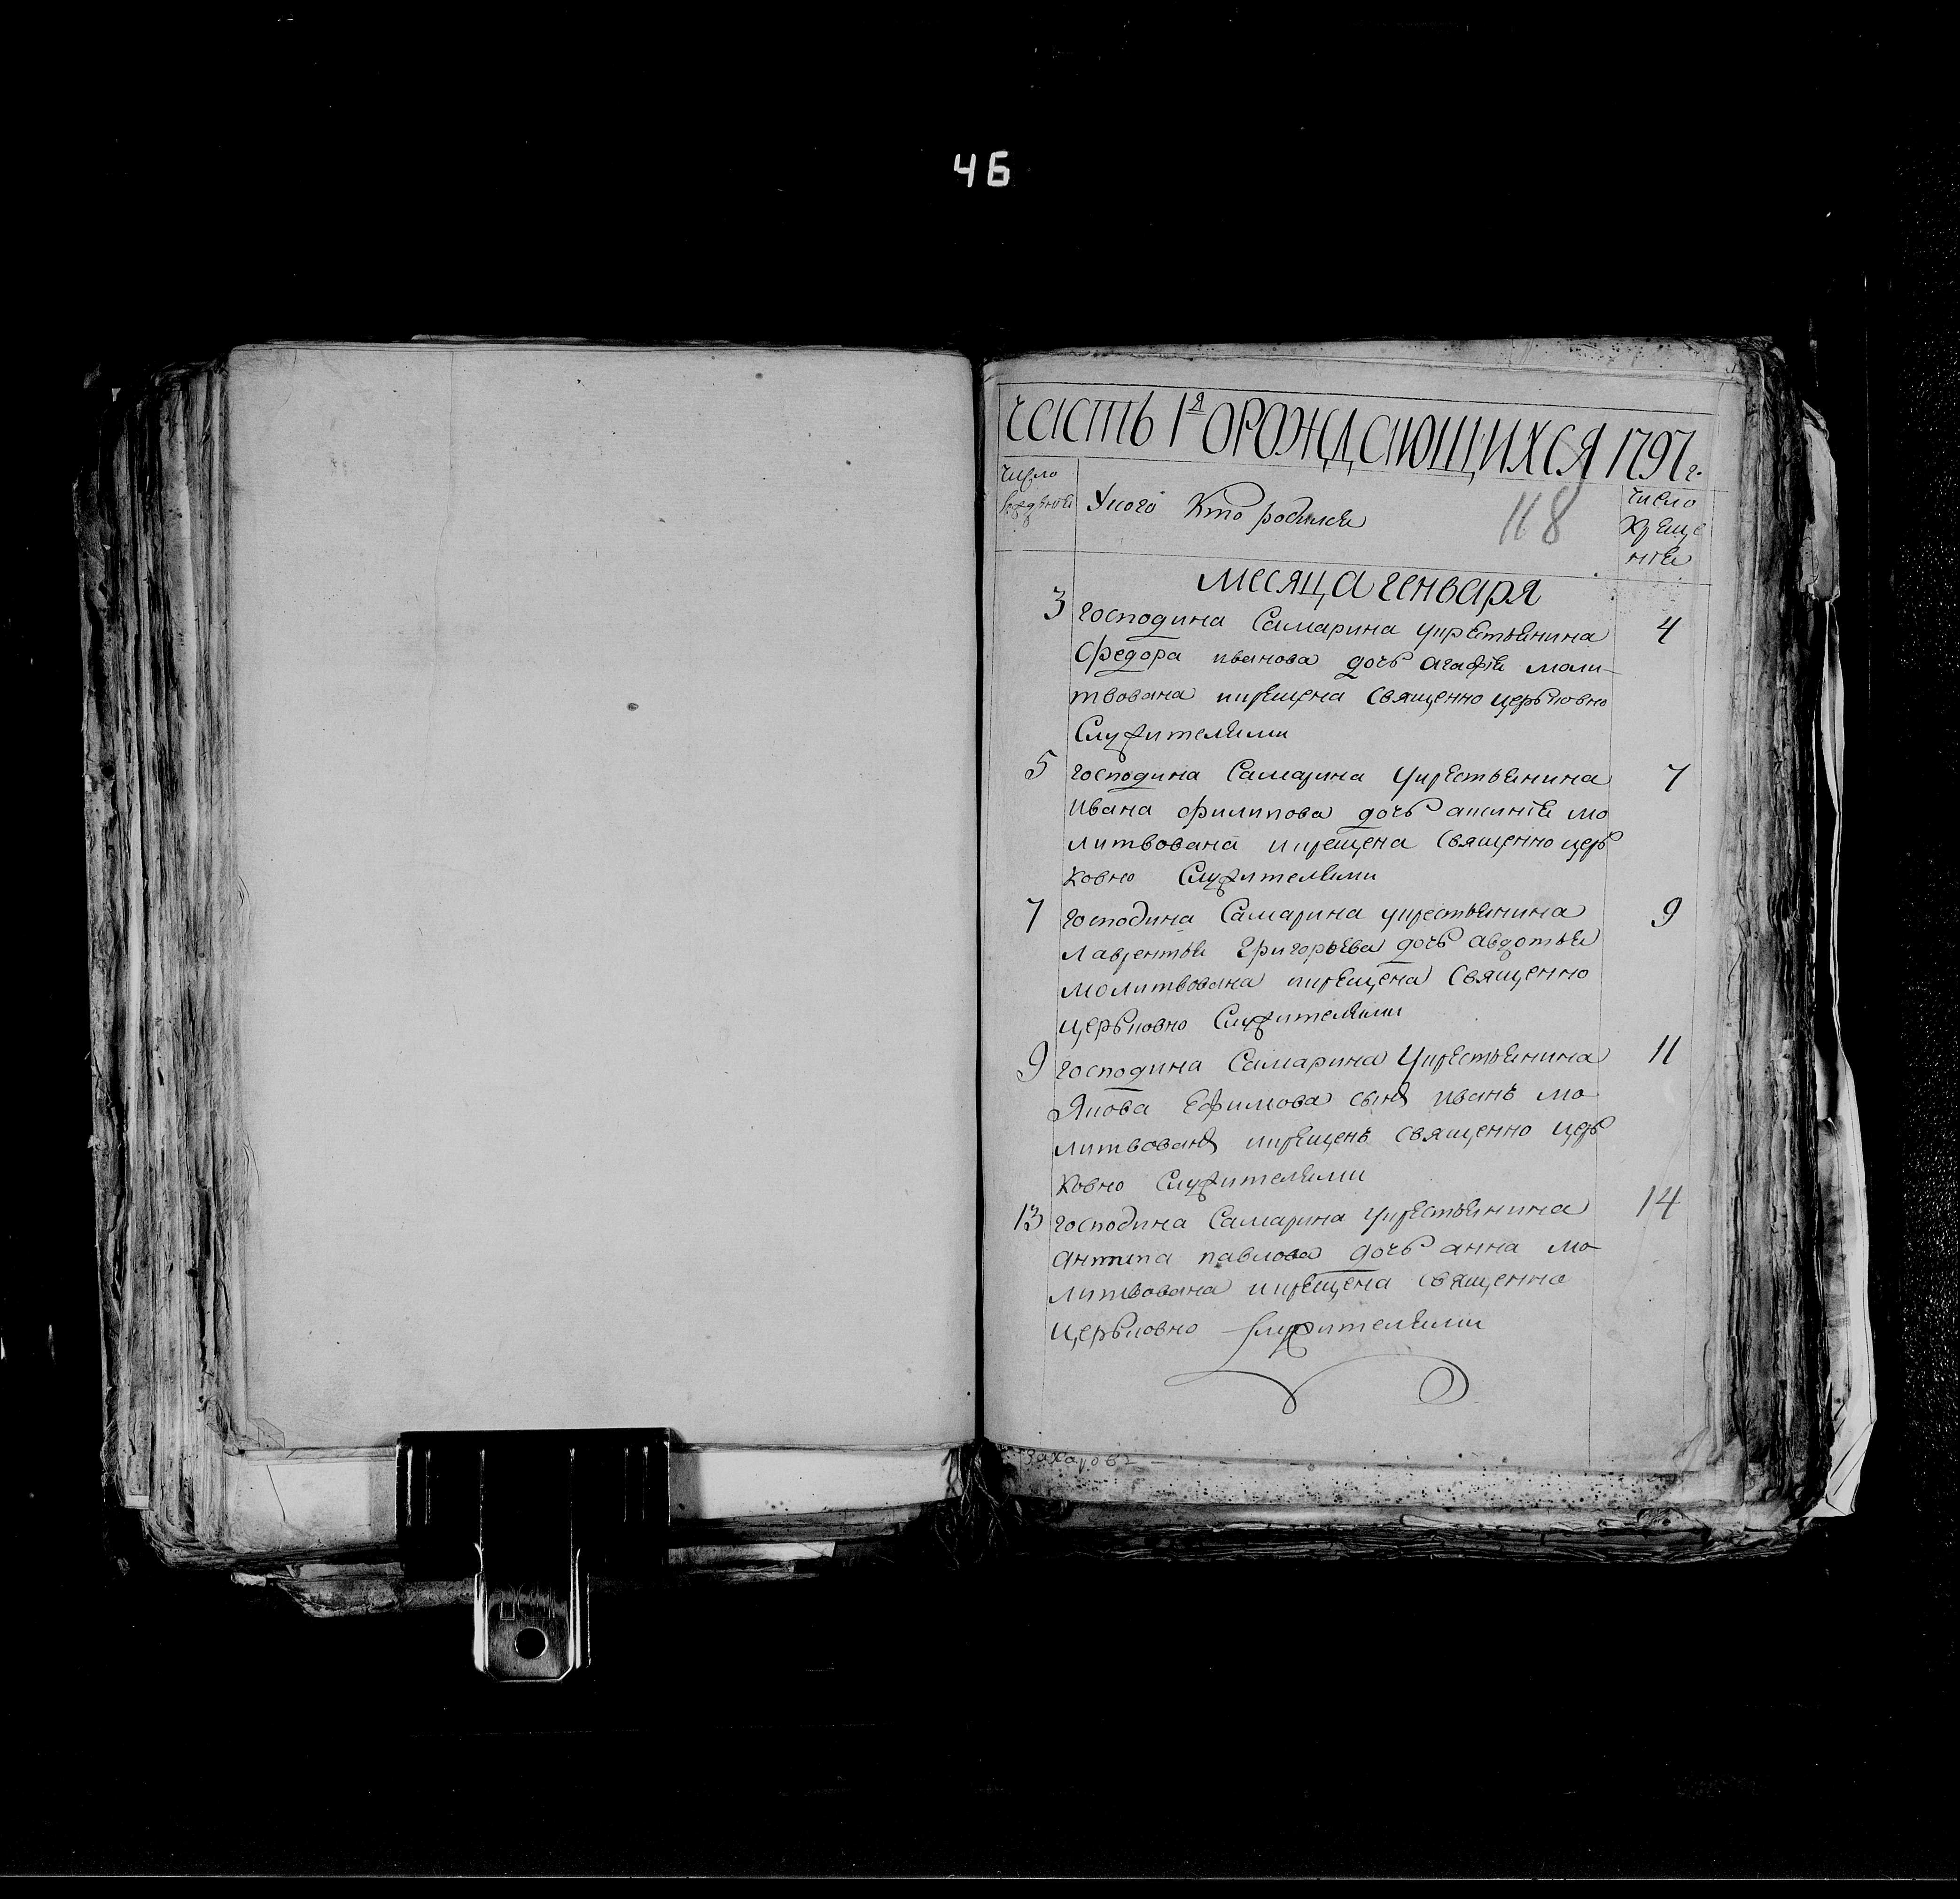 46
ЧАСТЬ 1я О РОЖДАЮЩИХСЯ 1797 г.
число рожденія
У кого кто родился
118
число креще нія
месяца генваря
3 господина Самарина у крестьянина 4
Федора иванова дочь агафія моли-
твована и крещена священно церьковно
служителями
5 господина Самарина у крестьянина 7
ивана филипова дочь аксинія мо
литвована и крещена священно церь
ковно служителями
7 господина Самарина у крестьянина 9
лаврентья григорьева дочь авдотья
молитвована и крещена священно
церьковно служителями
9 господина Самарина у крестьянина 11
Якова Ефимова сынъ иванъ мо
литвованъ и крещенъ священно церь
ковно служителями
13 господина Самарина у крестьянина 14
антипа павлова дочь анна мо-
литвована и крещена священно
церьковно служителями
Захаровъ